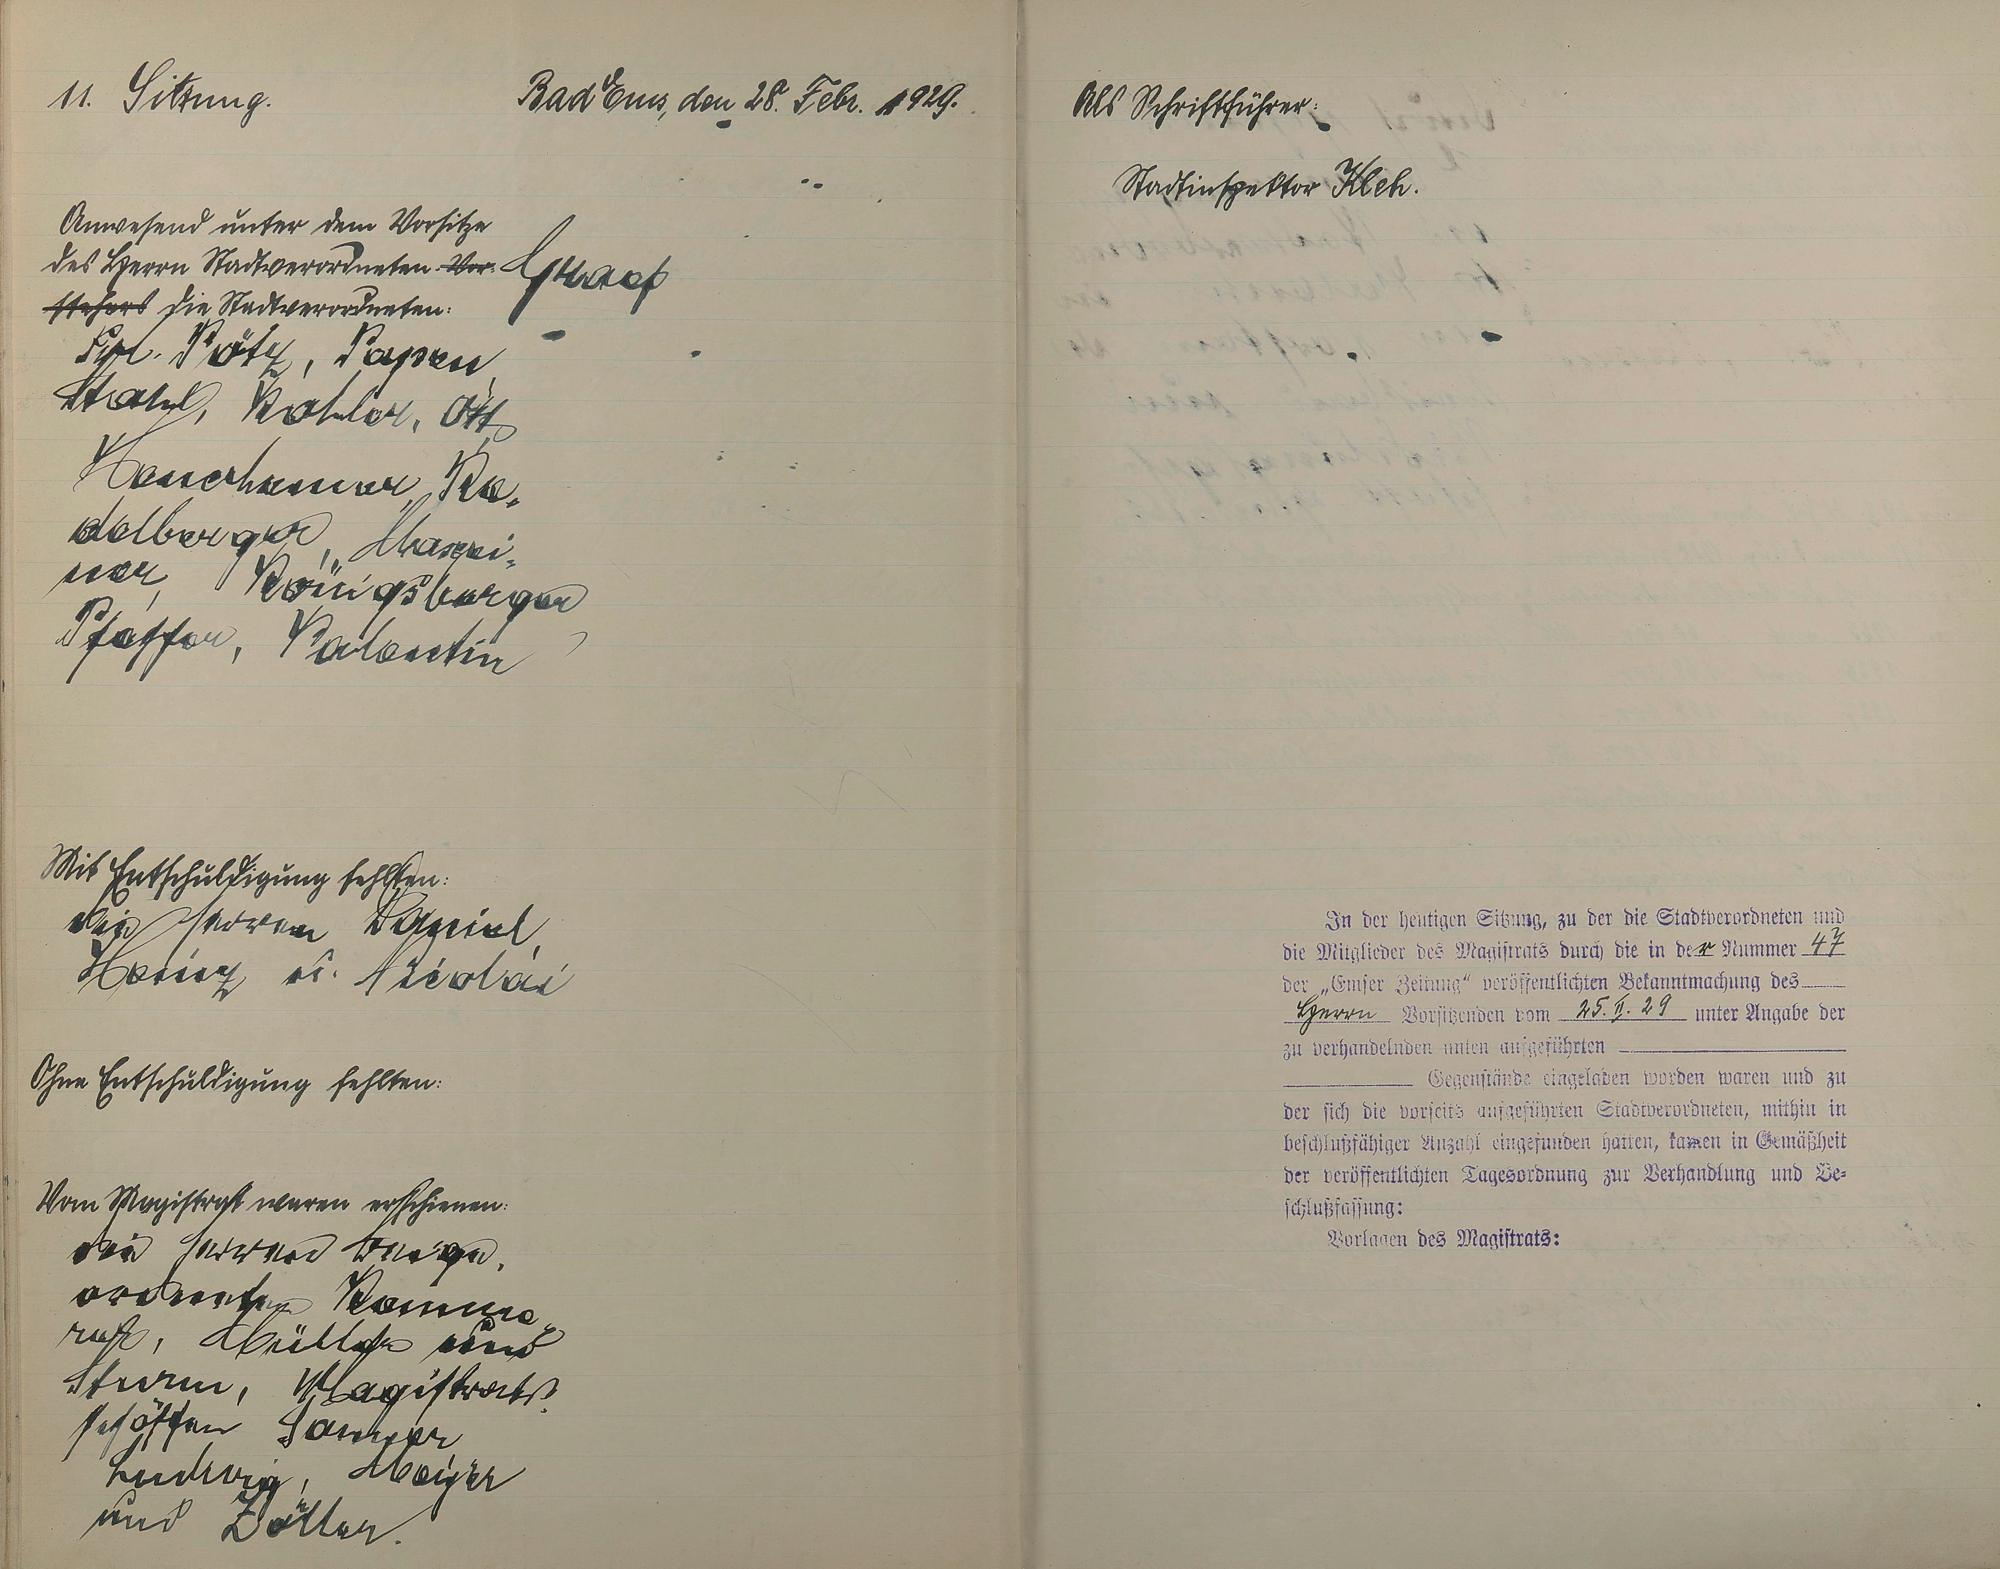 11. Sitzung. Bad Ems, den 28. Febr. 1929.
Anwesend unter dem Vorsitze
des Herrn Stadtverordneten-Vor-
stehers die Stadtverordneten:
Graef
Frl. Pötz, Papen,
Stahl, Kohler, Ott,
Hauerhammer, Ka-
delberger,
ner, Königsberger,
Pfeffer, Valentin
Mit Entschuldigung fehlten:
die Herren Daniel,
Heinz u. Nicolai
Ohne Entschuldigung fehlten:
Vom Magistrat waren erschienen:
die Herren Beige-
ordneten Komme-
rath, Müller und
Sturm, Magistrats-
schöffen
Ludwig, Meyer
und Zöller.
Als Schriftführer:
Stadtinspektor Kleh.
In der heutigen Sitzung, zu der die Stadtverordneten und
die Mitglieder des Magistrats durch die in der Nummer 47
der „Emser Zeitung“ veröffentlichten Bekanntmachung des
Herrn Vorsitzenden vom 25. II. 29 unter Angabe der
zu verhandelnden unten aufgeführten
Gegenstände eingeladen worden waren und zu
der sich die vorseits aufgeführten Stadtverordneten, mithin in
beschlußfähiger Anzahl eingefunden hatten, kamen in Gemäßheit
der veröffentlichten Tagesordnung zur Verhandlung und Be-
schlußfassung:
Vorlagen des Magistrats: